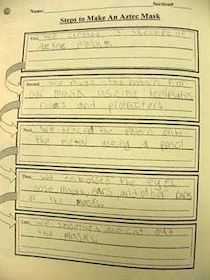 Name: Sec/Grade
Steps to Make An Aztec Mask
First, we created a sketches of
aztec masks.
Second, we made the pattern for
our mask useing templates
and protractors
Next, we traced the pattern onto
the metal useing a pencil
Then, we embossed the eyes
nose mouth ears and other parts
of the mask.
Last, we
the masks.